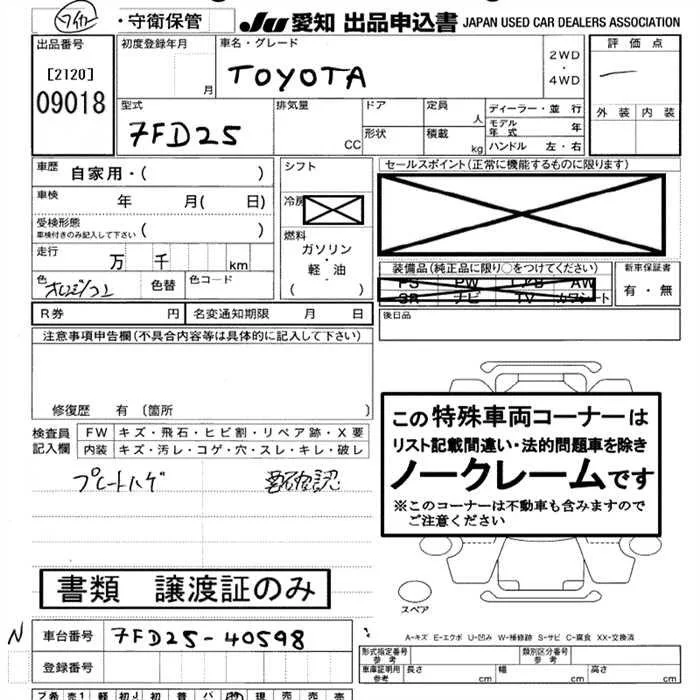 ・守衛保管
JU 愛知 出品申込書 JAPAN USED CAR DEALERS ASSOCIATION
出品番号
[2120]
09018
初度登録年月
月
車名・グレード
TOYOTA
2WD
・
4WD
評価点
外装 内装
型式
7FD25
排気量
CC
ドア
形状
定員
人
積載
kg
ディーラー・並行
モデル年式
年
ハンドル 左・右
車歴
自家用・( )
車検
年 月( 日)
受検形態
車検付きのみ記入して下さい ( )
走行
万 千 km
色
色替
色コード
シフト
冷房
燃料
ガソリン
・
軽 油
( )
セールスポイント(正常に機能するものに限ります)
装備品(純正品に限り○をつけてください)
PS PW AW
SR ナビ TV カワシート
新車保証書
有・無
後日品
R券 円 名変通知期限 月 日
注意事項申告欄(不具合内容等は具体的に記入して下さい)
修復歴 有 (箇所 )
検査員
記入欄
FW キズ・飛石・ヒビ割・リペア跡・X要
内装 キズ・汚レ・コゲ・穴・スレ・キレ・破レ
この特殊車両コーナーは
リスト記載間違い・法的問題車を除き
ノークレームです
※このコーナーは不動車も含みますので
ご注意ください
書類 譲渡証のみ
スペア
N
車台番号
7FD25-40598
登録番号
A-キズ E-エクボ U-凹み W-補修跡 S-サビ C-腐食 XX-交換済
形式指定番号
参考
類別区分番号
参考
車庫証明用
参考
長さ cm
幅 cm
高さ cm